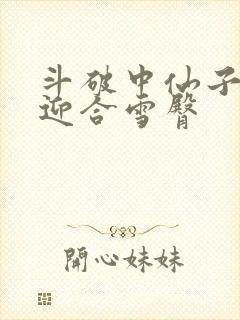 斗破中仙子
迎合雪臀
開心妹妹